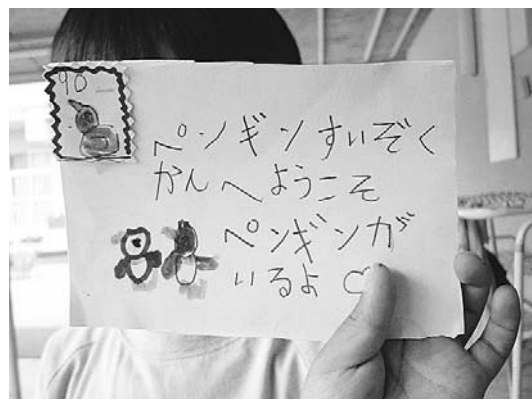 90
ペンギンすいぞく
かんへようこそ
ペンギンが
いるよ♡